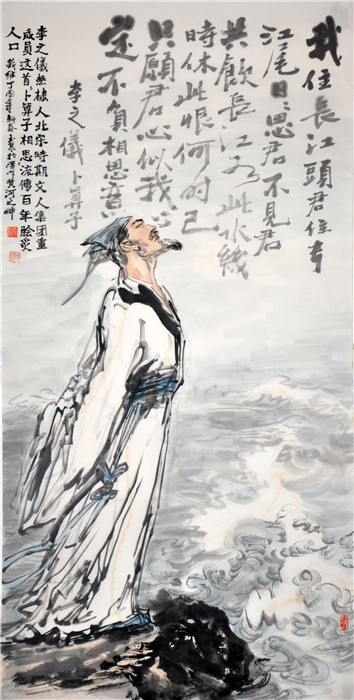 我住長江頭君住長
江尾日日思君不見君
共飲長江水此水幾
時休此恨何時已
只願君心似我心
定不負相思意
李之儀卜算子
李之儀無棣人北宋時期文人集團重
成員這首卜算子相思流傳百年膾炙
人口 丁酉年新春 黄河之畔